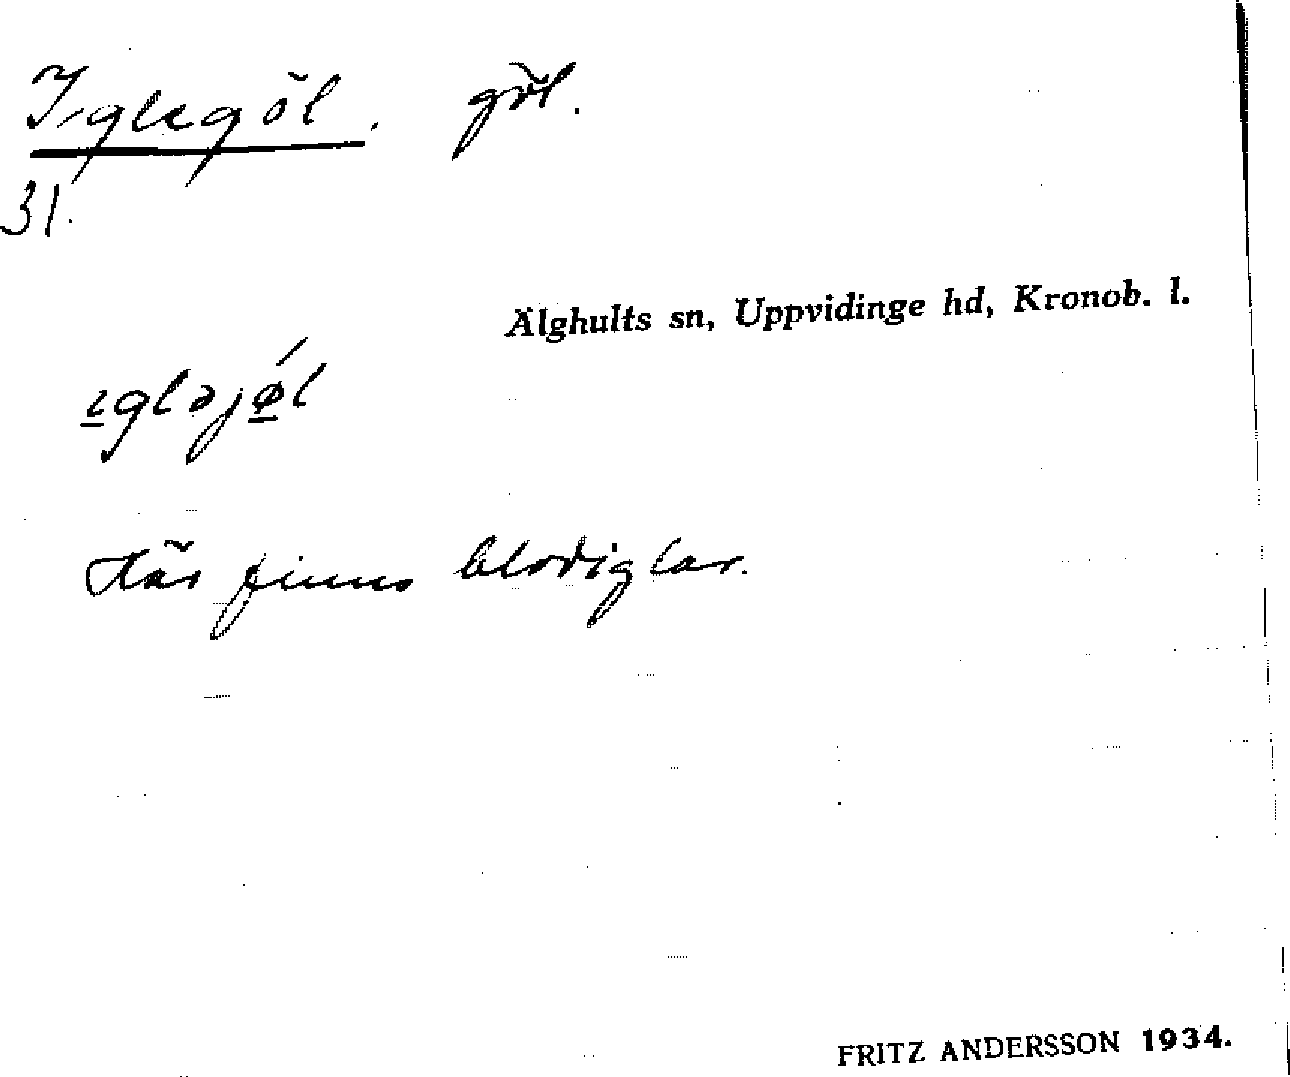 Iglegöl. göl.
31.
Älghults sn, Uppvidinge hd, Kronob. l.
ıgləjǿ̲l
Här finns blodiglar.
FRITZ ANDERSSON 1934.